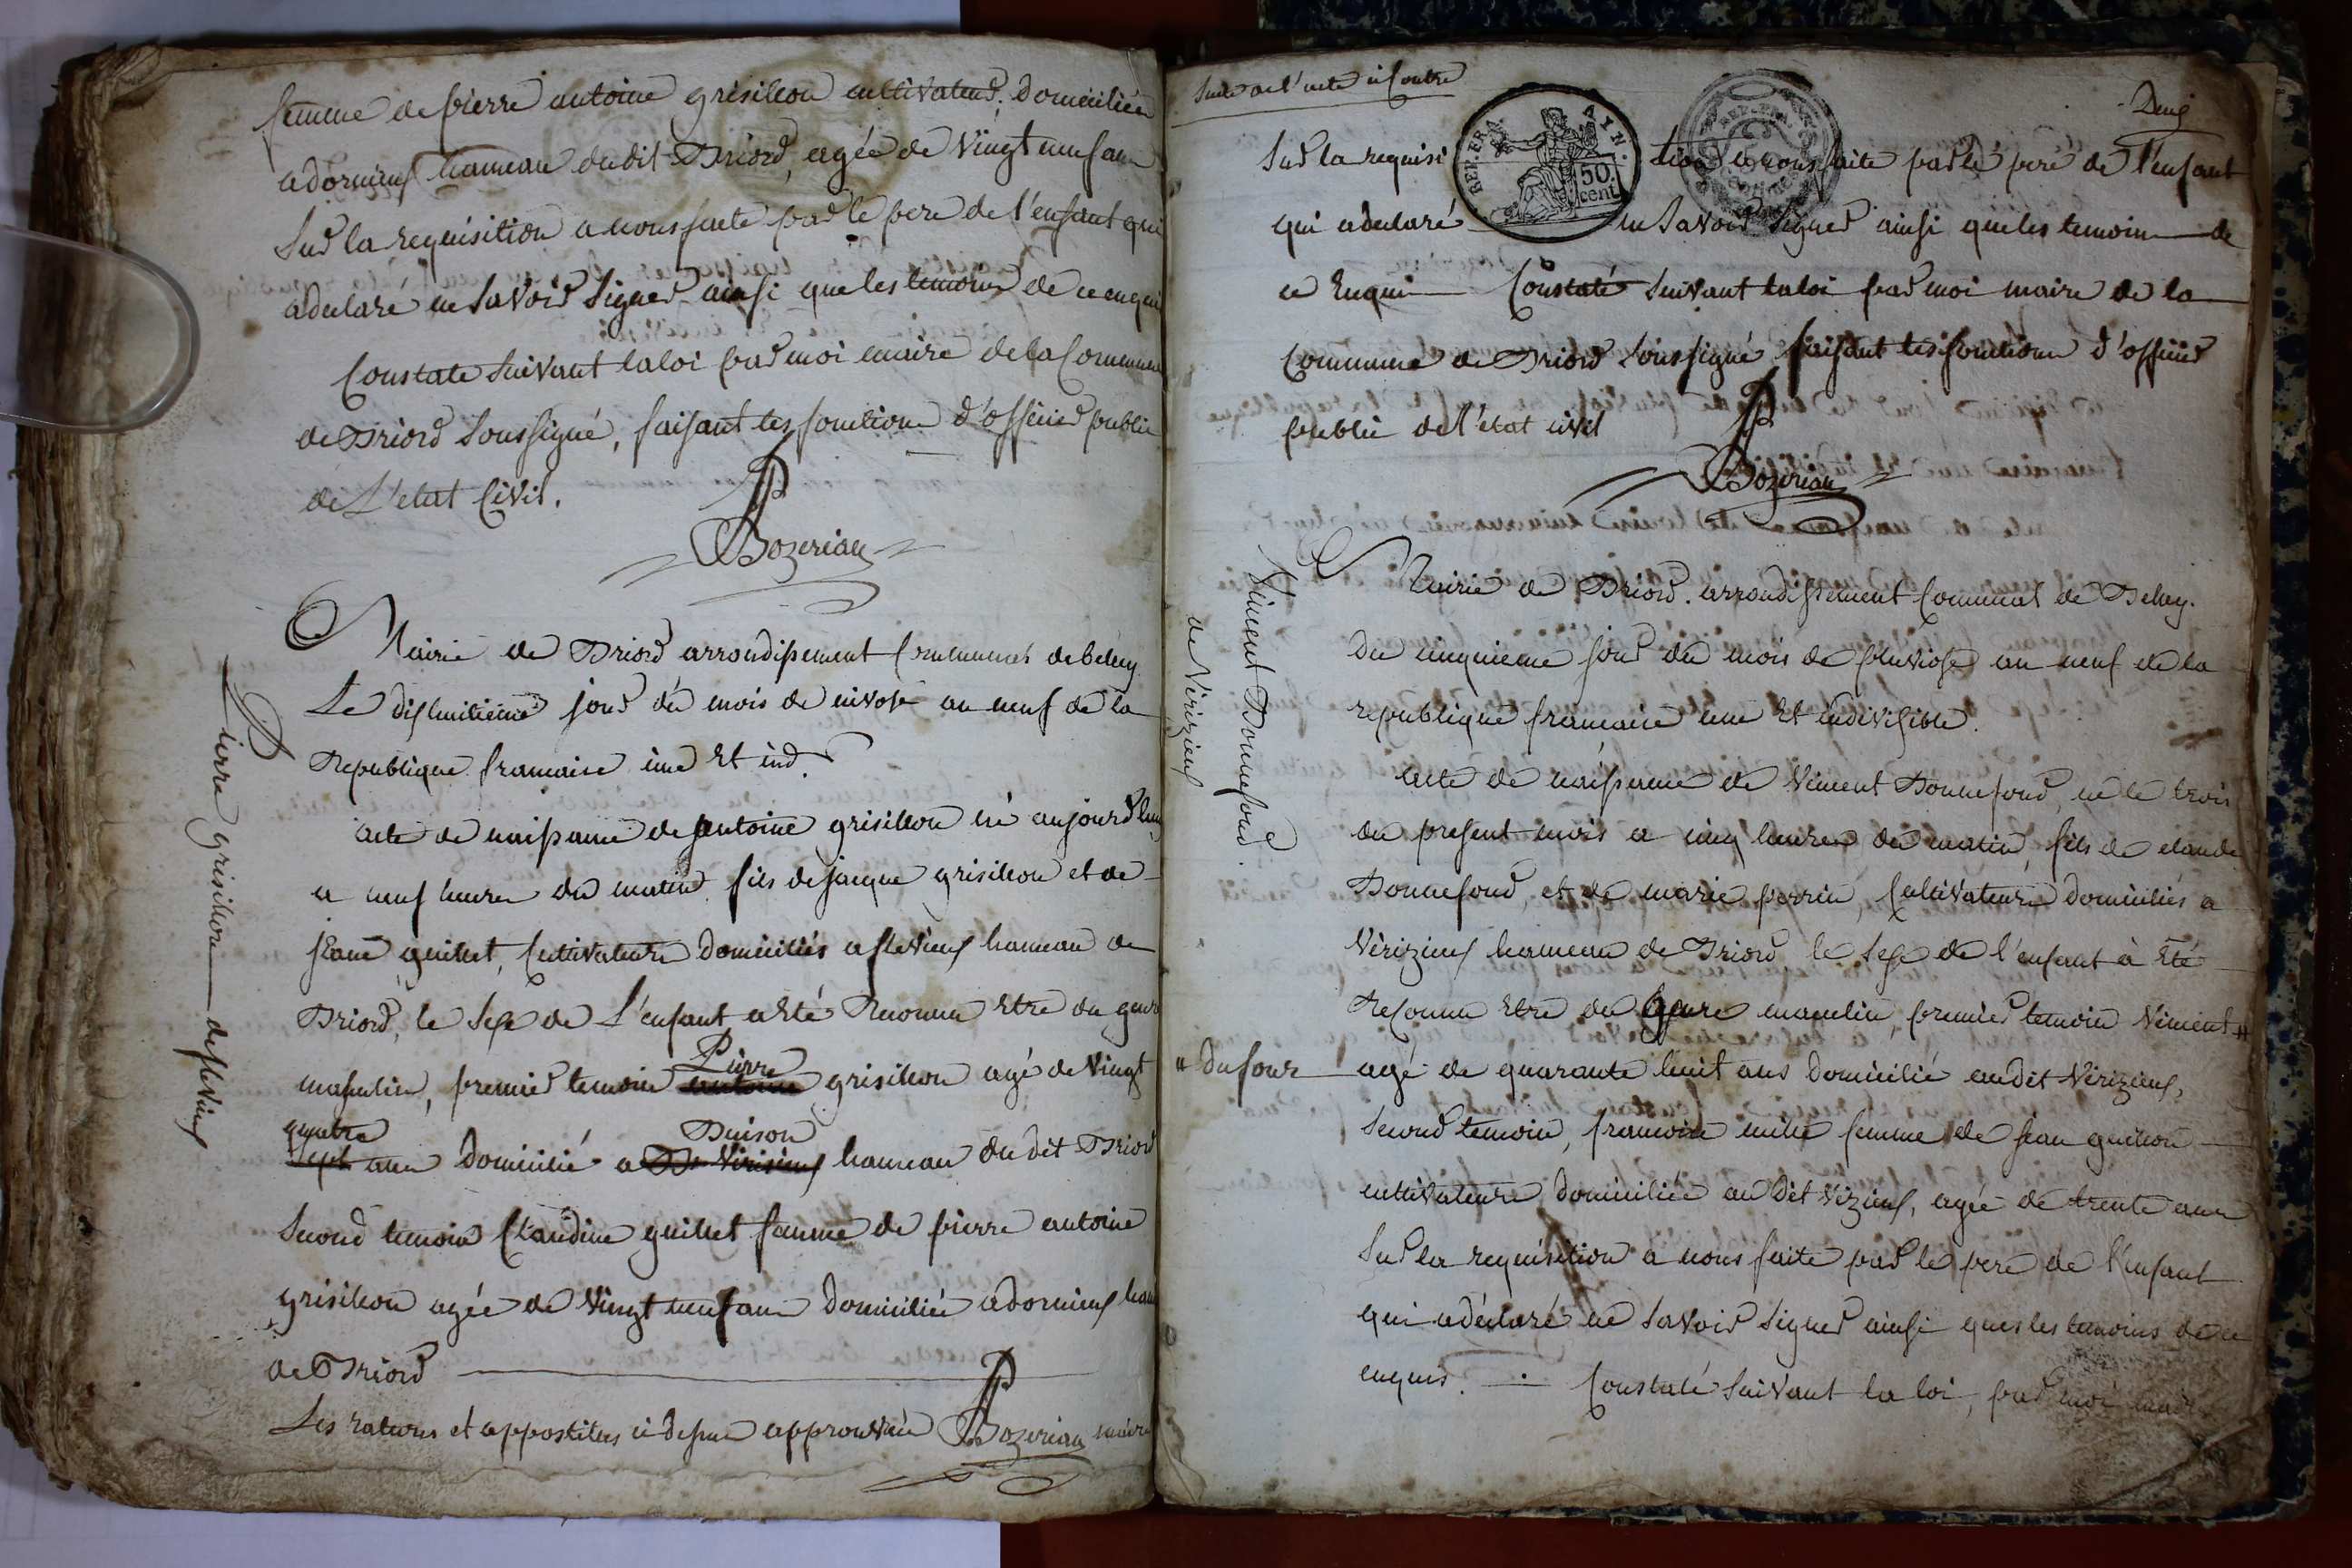 femme de pierre antoine grisillon cultivateur, domiciliée
a dornieux hameau du dit Briord, agée de vingt neuf ans
Sur la requisition a nous faite par le pere de l'enfant qui
a déclaré ne savoir signer ainsi que les temoins de ce enquis
Constaté suivant la loi par moi maire de la Commune
de Briord soussigné, faisant les fonctions d'officier public
de L'etat Civil.
Bozerian
Pierre grisillon de flevieux
Mairie de Briord arrondissement Communal de beley
Le dix huitieme jour du mois de nivose an neuf de la
Republique francaise une Et ind.
acte de naissance de antoine grisillon né aujourd'hui
a neuf heures du matin fils de jacque grisillon et de
jeane guillet, Cultivateurs domiciliés a flevieux hameau de
Briord, le sexe de L'enfant a Eté Reconnu Etre du genre
masculin, premier temoin antoine Pierre grisillon agé de vingt
sept quatre ans domicilié a Verisieux Buison hameau du dit Briord
Second temoin Claudine guillet femme de pierre antoine
grisillon agée de vingt neuf ans domiciliée a dornieux ham
de Briord
Les ratures et appostilles ci dessus approuvées Bozerian maire
Suite de l'acte ci Contre
Deux
REP. FRA. AYN.
50. cent.
Sur la requisition a nous faite par le pere de l'enfant
qui a declaré ne savoir signer ainsi que les temoins de
ce Enquis Constaté suivant la loi par moi maire de la
Commune de Briord soussigné faisant les fonctions d'officier
public de l'état civil
Bozerian
Vincent Bonnefond.
de Verizieux
Mairie de Briord. arrondissement Communal de Beley.
du cinquieme jour du mois de pluviose an neuf de la
republique francaise une Et indivisible.
acte de naissance de Vincent Bonnefond, né le trois
du present mois a cinq heures du matin, fils de claude
Bonnefond, et de marie perrin, Cultivateurs domiciliés a
Verizieux hameau de Briord le sexe de l'enfant à Eté
Reconnu Etre du genre masculin, premier temoin Vincent #
# Dufour
agé de quarante huit ans domicilié audit Verizieux,
Second temoin, francoise femme de jean guillon
cultivateurs domiciliée au dit vizieux, agée de trente ans
Sur la requisition a nous faite par le pere de l'enfant
qui a déclaré ne savoir signer ainsi que les temoins de ce
enquis. Constaté suivant la loi, par moi maire